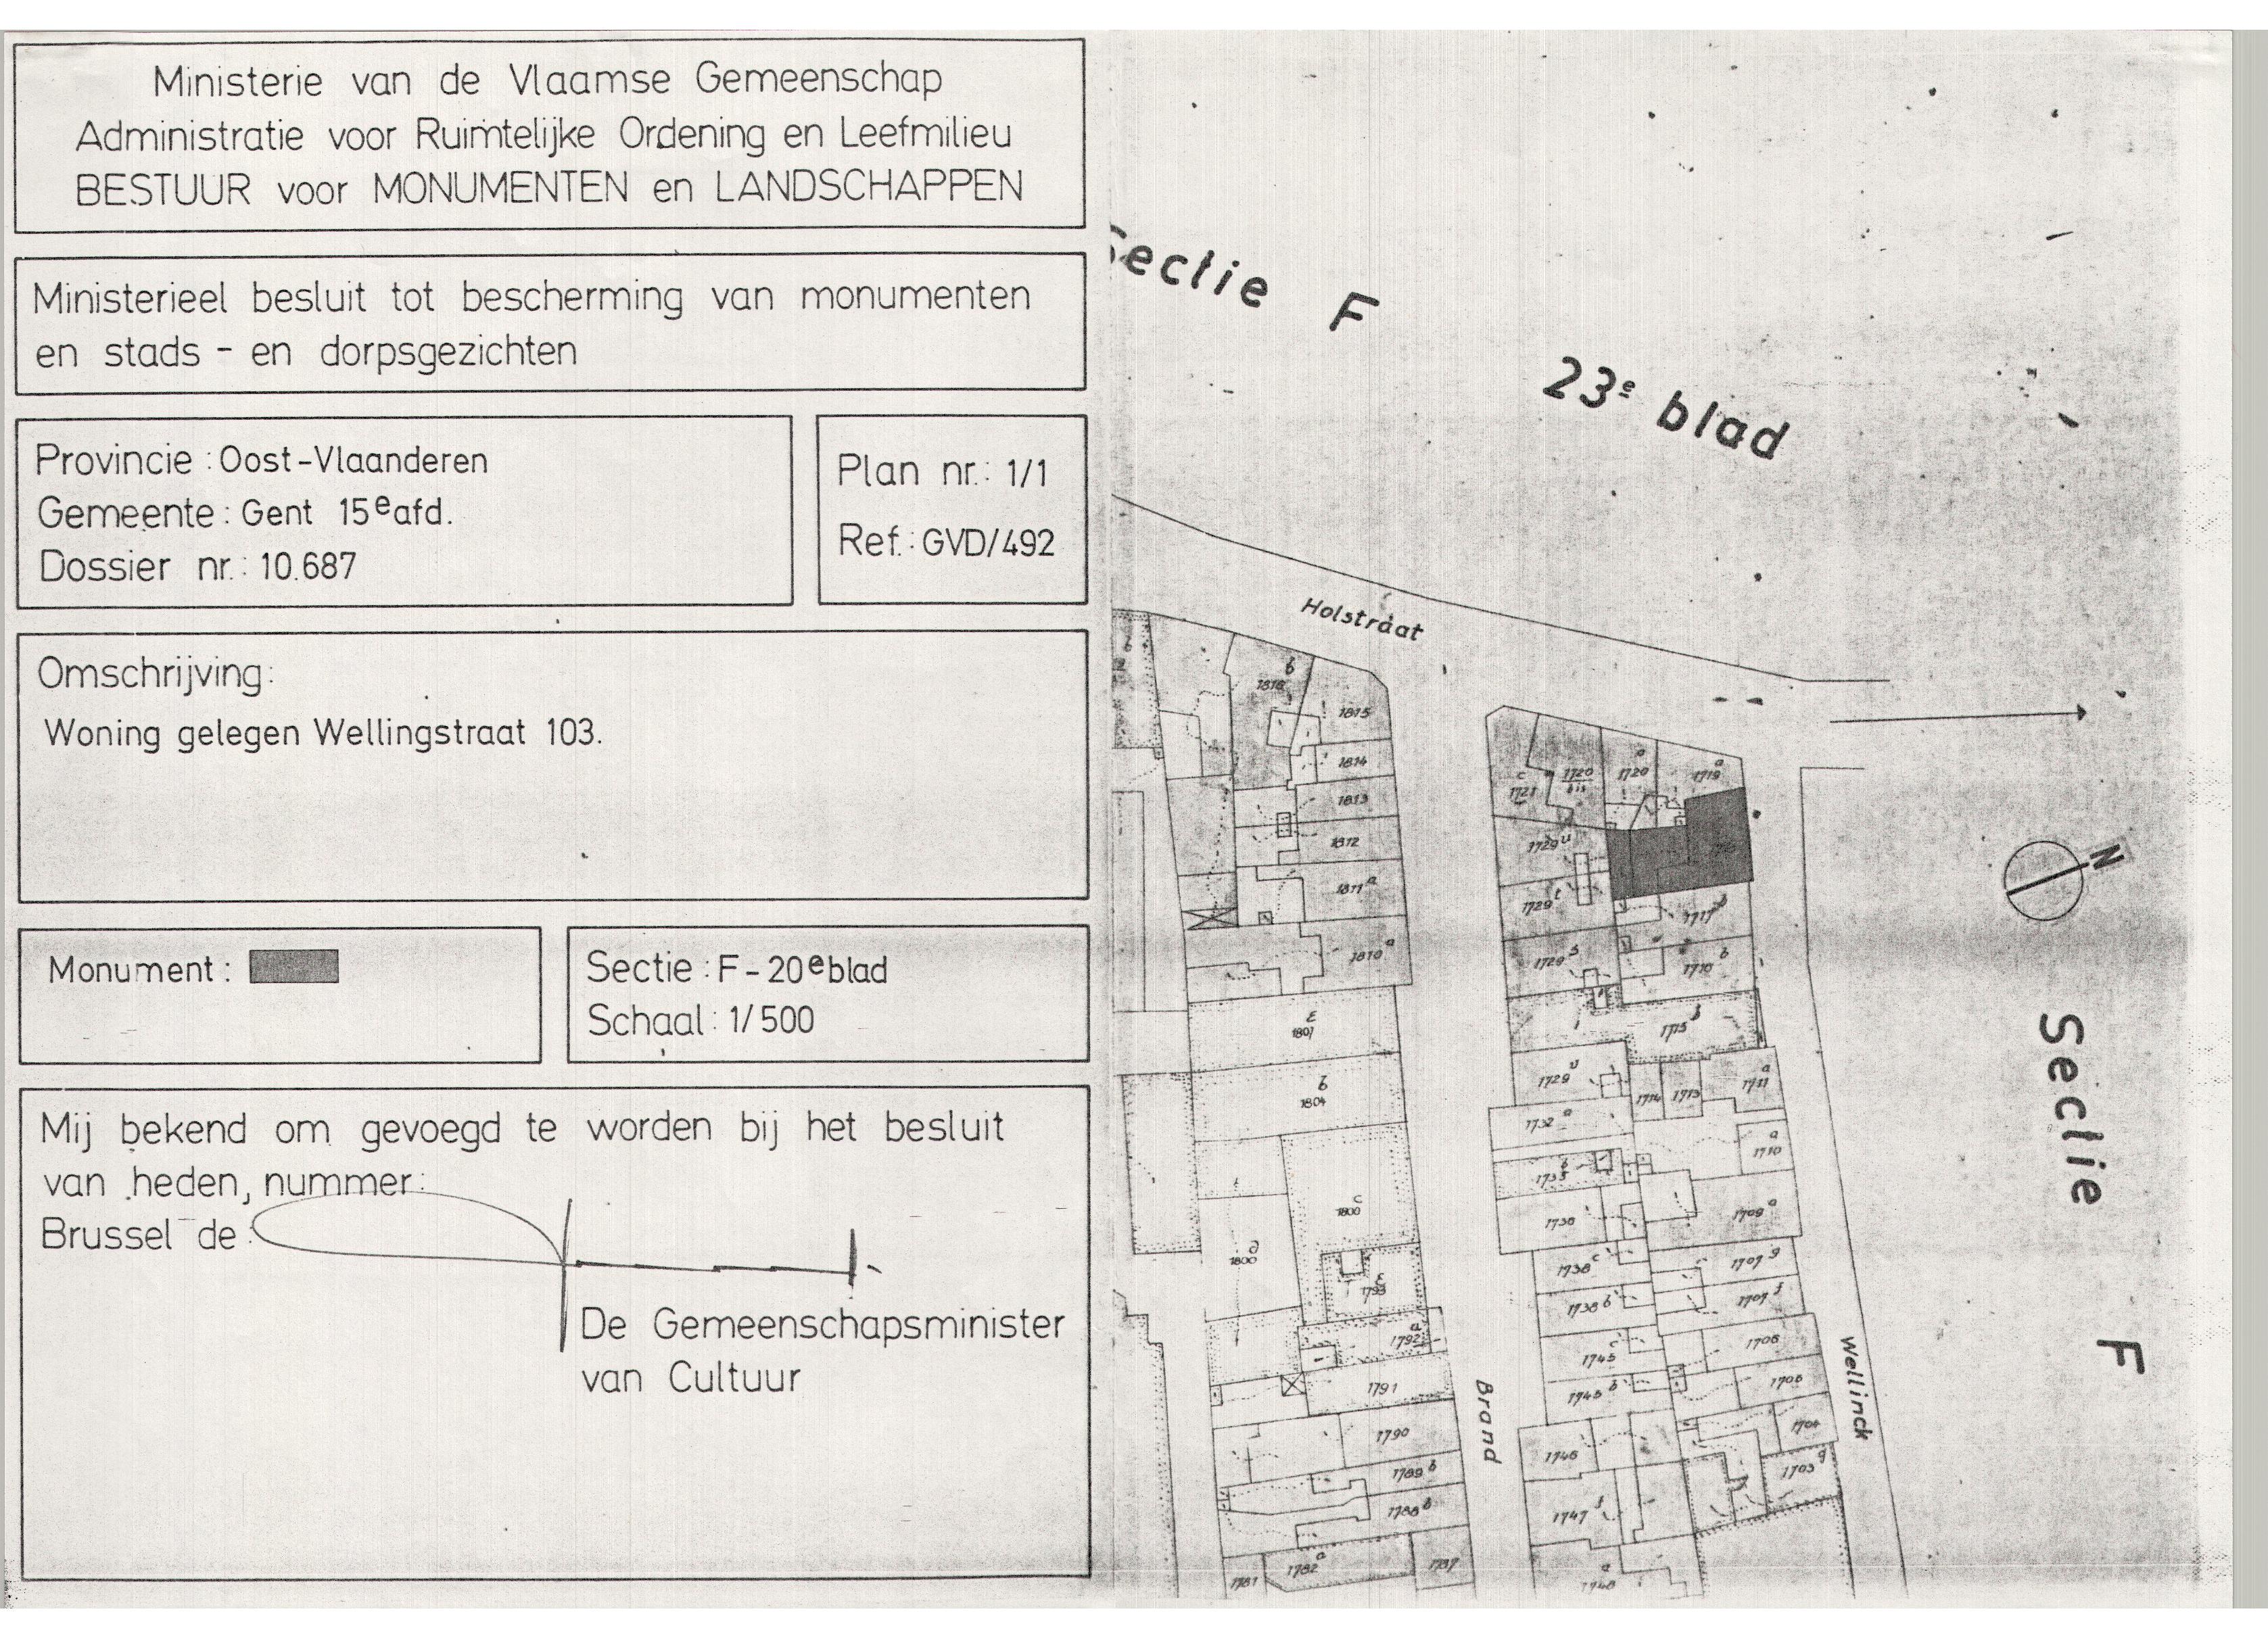 Ministerie van de Vlaamse Gemeenschap
Administratie voor Ruimtelijke Ordening en Leefmilieu
BESTUUR voor MONUMENTEN en LANDSCHAPPEN
Ministerieel besluit tot bescherming van monumenten
en stads - en dorpsgezichten
Provincie : Oost-Vlaanderen
Gemeente : Gent 15e afd.
Dossier nr. : 10.687
Plan nr. : 1/1
Ref. : GVD/492
Omschrijving:
Woning gelegen Wellingstraat 103.
Monument :
Sectie : F - 20e blad
Schaal : 1/500
Mij bekend om gevoegd te worden bij het besluit
van heden, nummer:
Brussel de :
De Gemeenschapsminister
van Cultuur
Sectie F
23e blad
Holstraat
1816 b
1815
1814
1813
1812
1811 a
1810 a
1807
1804
1800 c
1800 d
1793
1792 a
1791
1790
1789 b
1788 b
1787
1782 a
1781
Brand
1721 c
1720 bis
1720 a
1719 a
1729 u
1729 t
1729 s
1717
1716 b
1715
1729
1714
1713
1711 a
1732 a
1710 a
1735 b
1736
1709 a
1738 c
1707 g
1738 b
1707 f
1745 c
1706
1745 b
1705
1746
1704
1703 q
1747
1748 a
Wellinck
N
Sectie F